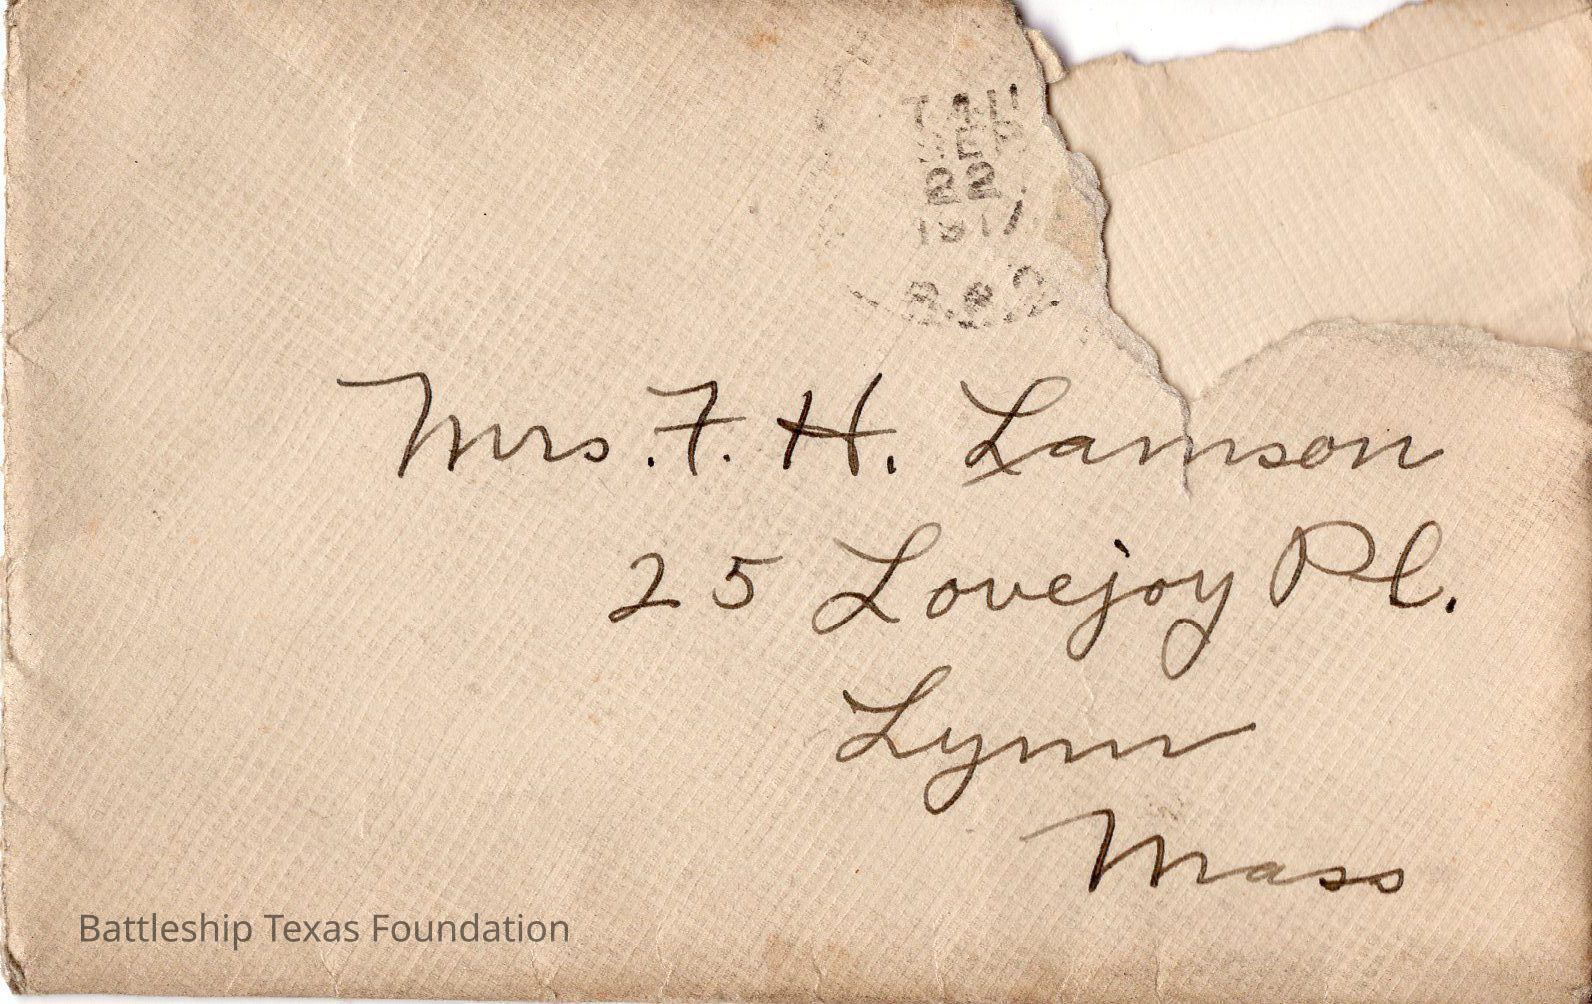 SEP
22
1917
Mrs. F. H. Lamson
25 Lovejoy Pl.
Lynn
Mass
Battleship Texas Foundation